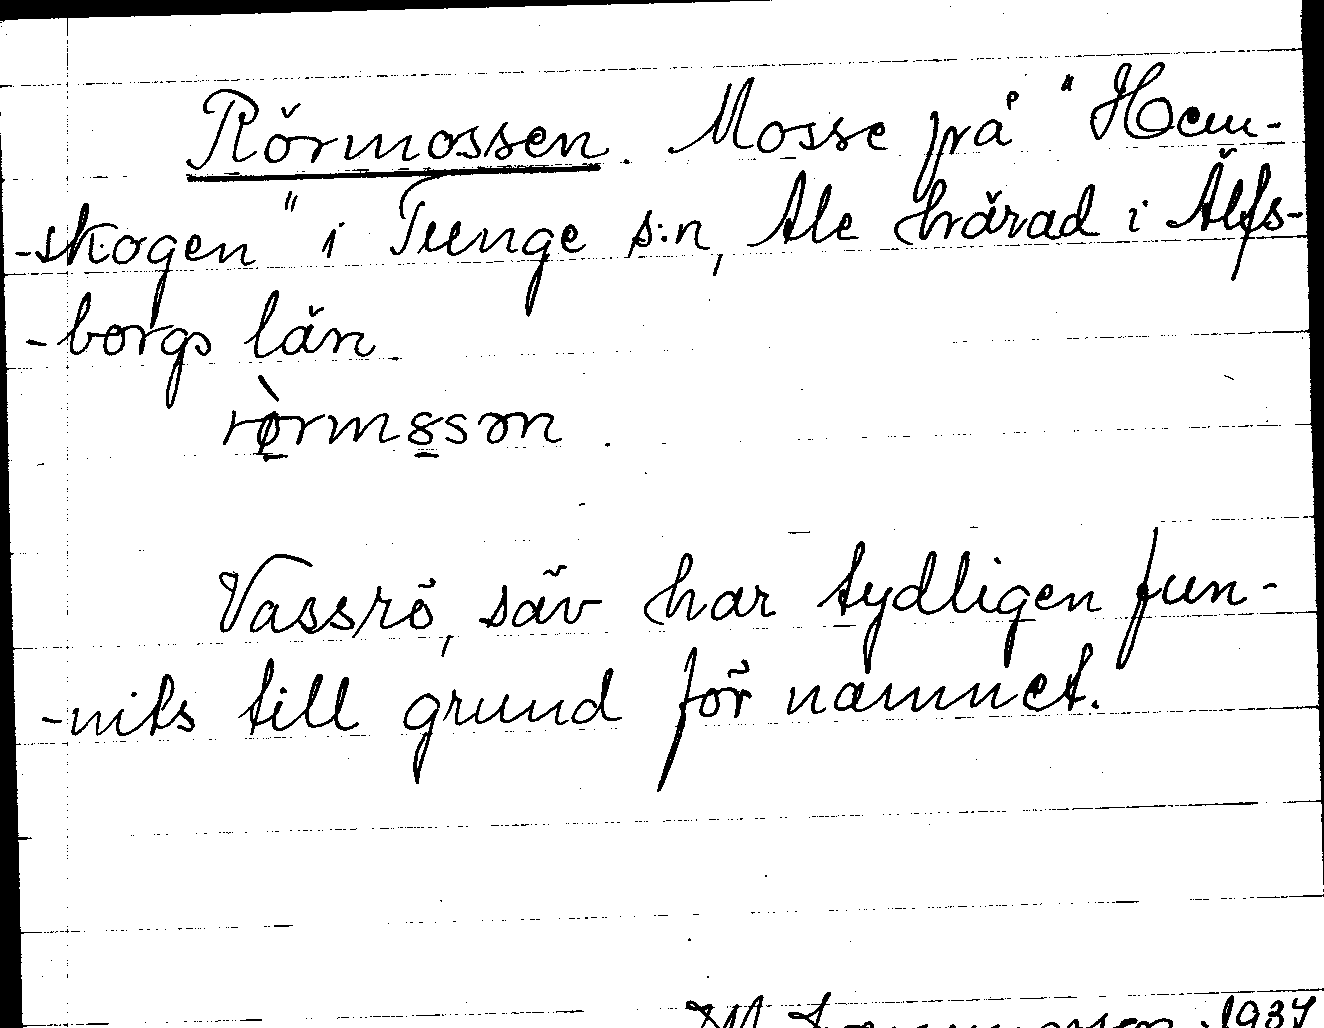 Rörmossen. Mosse på "Hem-
-skogen" i Tunge s:n, Ale härad i Älfs-
-borgs län.
rø̀rmȣsən.
Vassrö, säv har tydligen fun-
-nits till grund för namnet.
1937